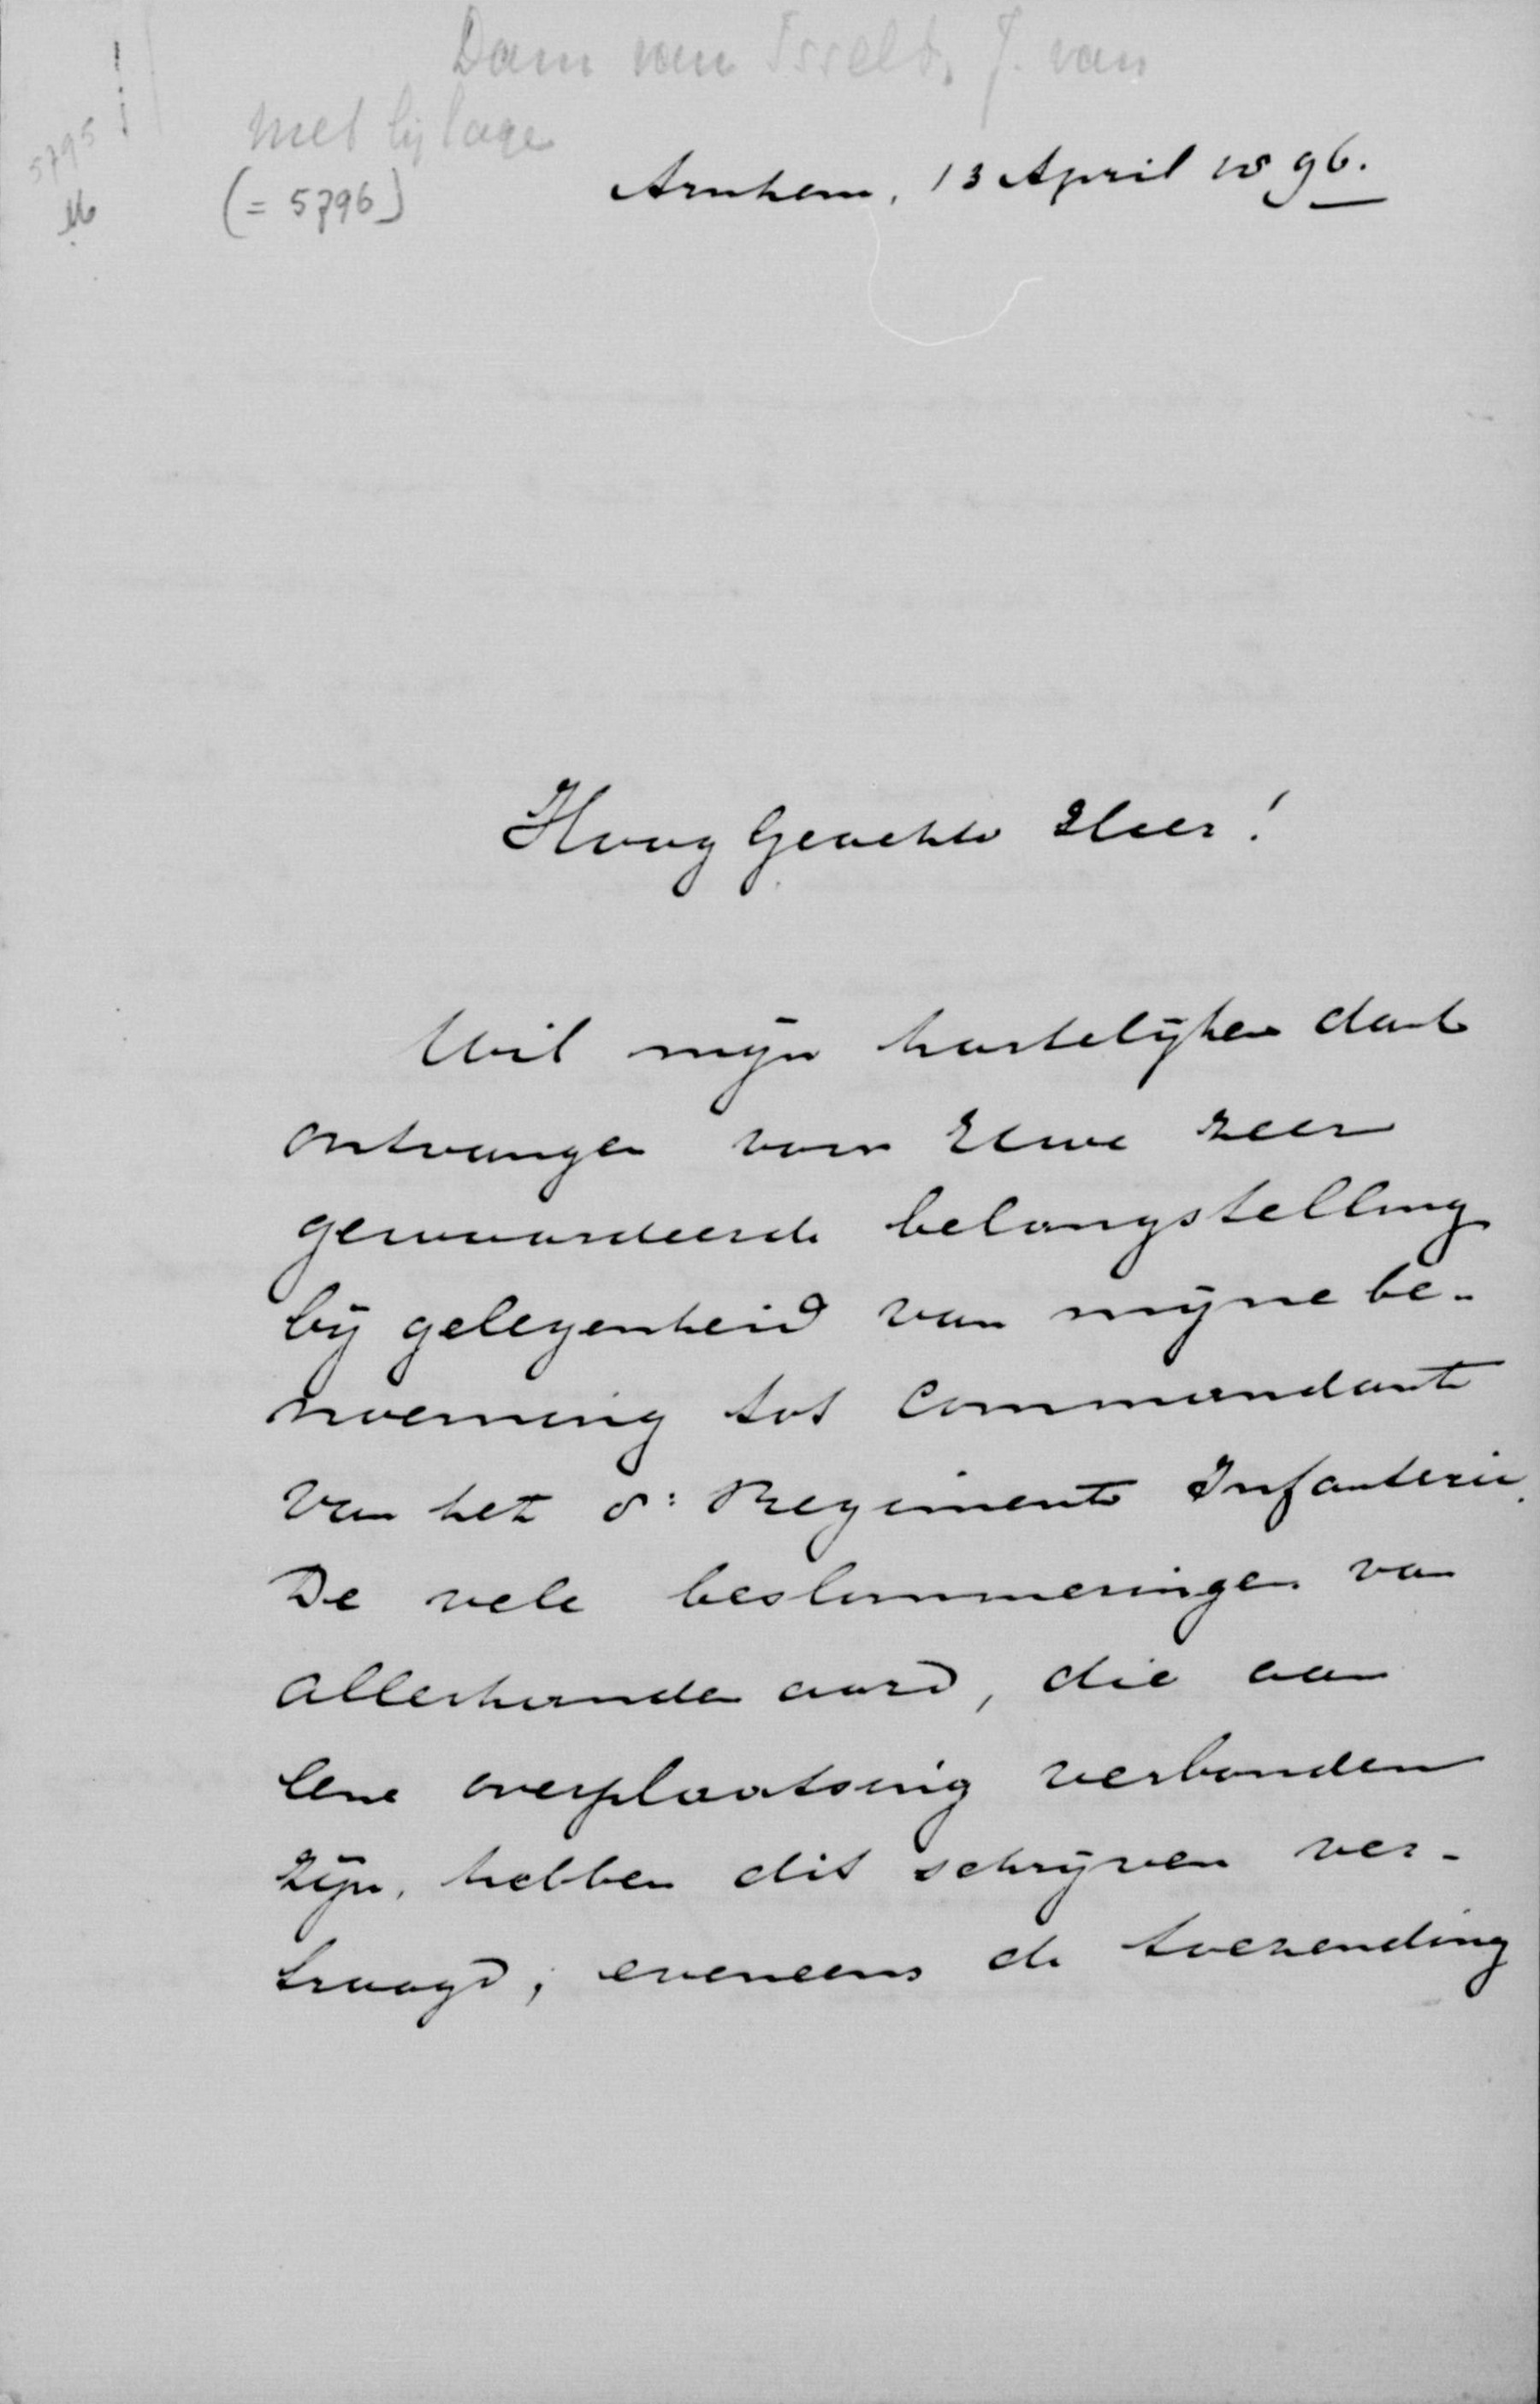 Dam van Isselt, J. van
met bijlage
5795
(= 5796)
Arnhem, 13 April 1896.
Hoog Geachte Heer!
Wil mijn hartelijken dank
ontvangen voor Uwe zeer
gewaardeerde belangstelling
bij gelegenheid van mijne be-
noeming tot Commandant
van het 8e Regiment Infanterie.
De vele beslommeringen van
allerhanden aard, die aan
eene overplaatsing verbonden
zijn, hebben dit schrijven ver-
traagd; eveneens de toezending